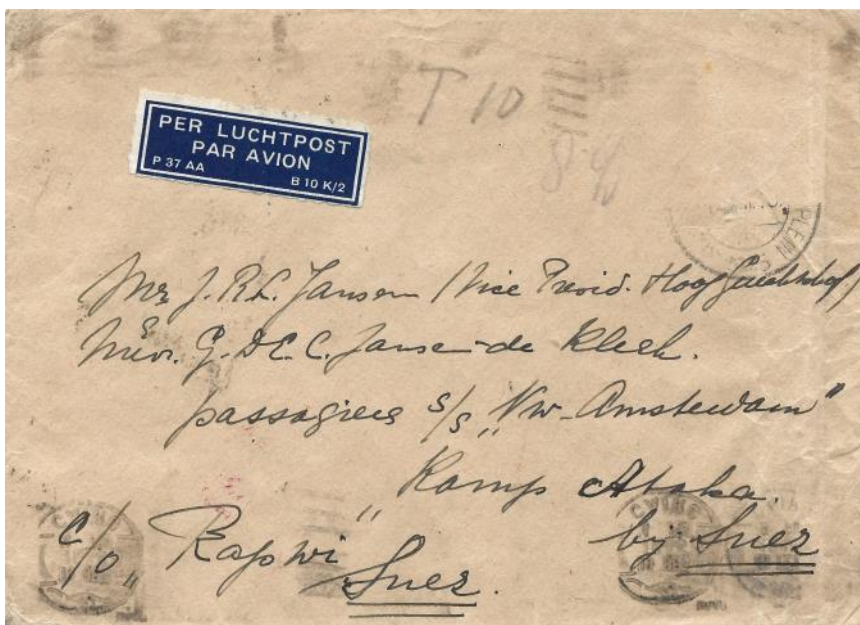 T 10
PER LUCHTPOST
PAR AVION
P 37 AA
B 10 K/2
PLEIN
Mr J.R.L. Jansen (Vice Presid. Hooggerechtshof)
&
Mevr. G.D.E.C. Jansen-de Kleek.
passagiers s/s „Nw-Amsterdam"
Kamp Ataka.
by Suez
c/o „Rapwi"
Suez.